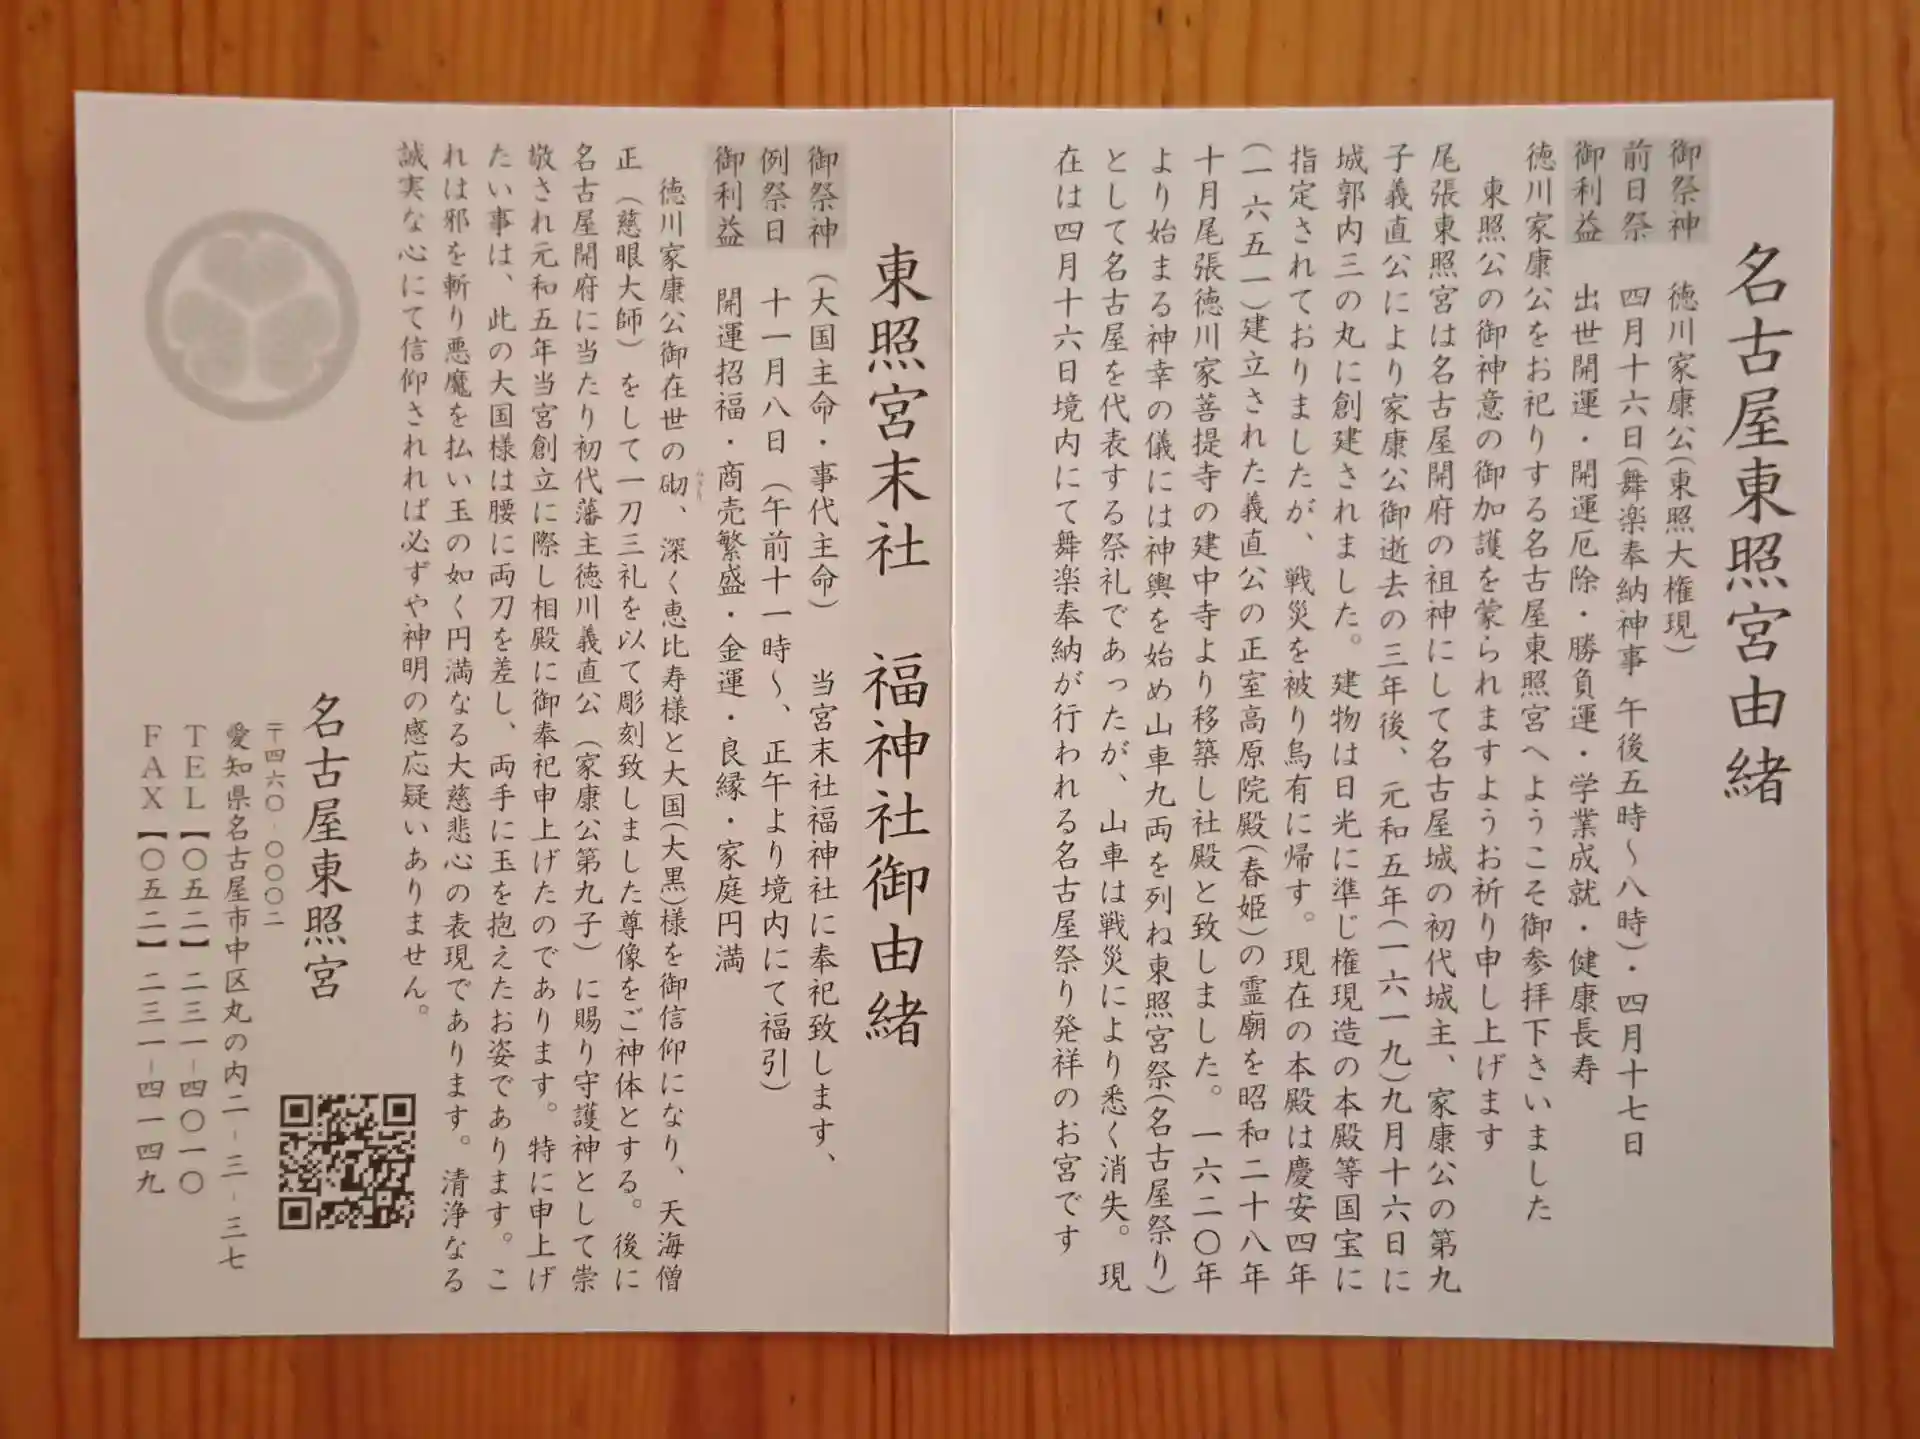 名古屋東照宮由緒
御祭神 徳川家康公(東照大権現)
前日祭 四月十六日(舞楽奉納神事 午後五時〜八時)・四月十七日
御利益 出世開運・開運厄除・勝負運・学業成就・健康長寿
徳川家康公をお祀りする名古屋東照宮へようこそ御参拝下さいました
東照公の御神意の御加護を蒙られますようお祈り申し上げます
尾張東照宮は名古屋開府の祖神にして名古屋城の初代城主、家康公の第九
子義直公により家康公御逝去の三年後、元和五年(一六一九)九月十六日に
城郭内三の丸に創建されました。建物は日光に準じ権現造の本殿等国宝に
指定されておりましたが、戦災を被り烏有に帰す。現在の本殿は慶安四年
(一六五一)建立された義直公の正室高原院殿(春姫)の霊廟を昭和二十八年
十月尾張徳川家菩提寺の建中寺より移築し社殿と致しました。一六二〇年
より始まる神幸の儀には神輿を始め山車九両を列ね東照宮祭(名古屋祭り)
として名古屋を代表する祭礼であったが、山車は戦災により悉く消失。現
在は四月十六日境内にて舞楽奉納が行われる名古屋祭り発祥のお宮です
東照宮末社 福神社御由緒
御祭神 (大国主命・事代主命) 当宮末社福神社に奉祀致します、
例祭日 十一月八日(午前十一時〜、正午より境内にて福引)
御利益 開運招福・商売繁盛・金運・良縁・家庭円満
徳川家康公御在世の砌、深く恵比寿様と大国(大黒)様を御信仰になり、天海僧
正(慈眼大師)をして一刀三礼を以て彫刻致しました尊像をご神体とする。後に
名古屋開府に当たり初代藩主徳川義直公(家康公第九子)に賜り守護神として崇
敬され元和五年当宮創立に際し相殿に御奉祀申上げたのであります。特に申上げ
たい事は、此の大国様は腰に両刀を差し、両手に玉を抱えたお姿であります。こ
れは邪を斬り悪魔を払い玉の如く円満なる大慈悲心の表現であります。清浄なる
誠実な心にて信仰されれば必ずや神明の感応疑いありません。
名古屋東照宮
〒四六〇-〇〇〇二
愛知県名古屋市中区丸の内二-三-三七
TEL【〇五二】二三一-四〇一〇
FAX【〇五二】二三一-四一四九